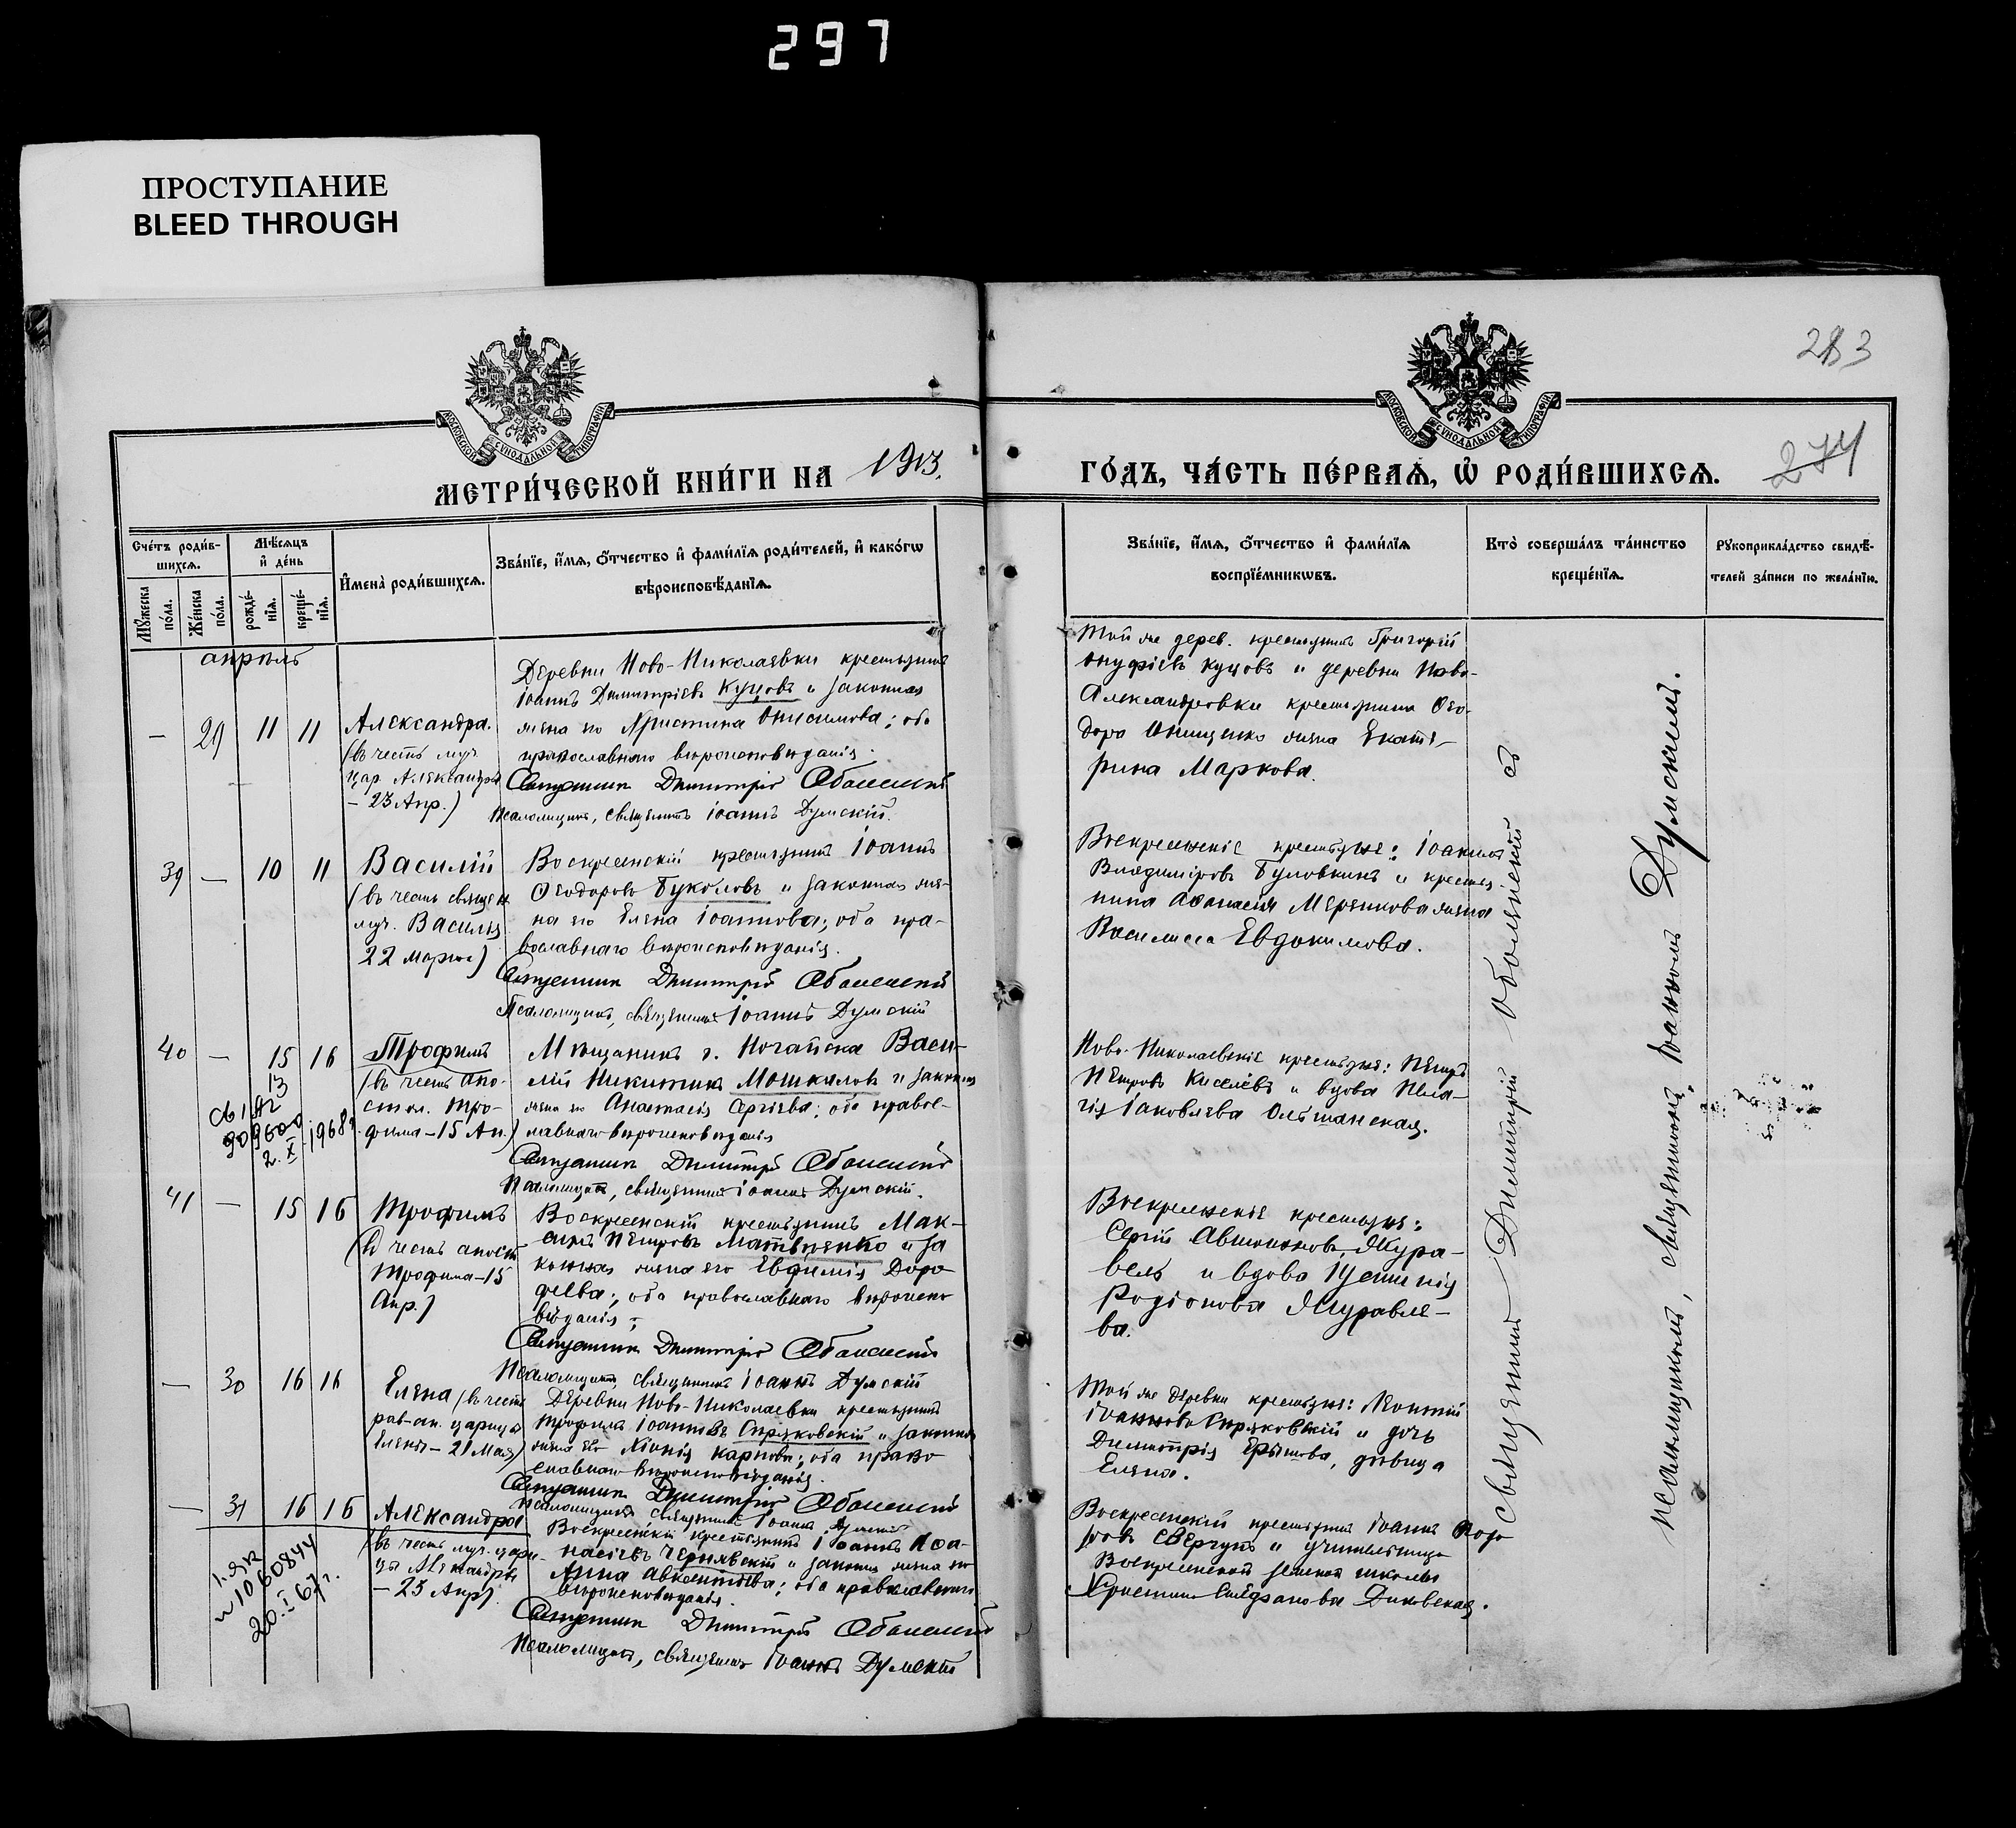 297
ПРОСТУПАНИЕ
BLEED THROUGH
283
274
МОСКОВСКОЙ СѴНОДАЛЬНОЙ ТИПОГРАФІИ
МОСКОВСКОЙ СѴНОДАЛЬНОЙ ТИПОГРАФІИ
МЕТРИ́ЧЕСКОЙ КНИ́ГИ НА 1913.
ГО́ДЪ, ЧА́СТЬ ПЕ́РВАѦ, Ѡ҆ РОДИ́ВШИХСѦ.
Сче́тъ роди́в-
шихсѧ.
Мꙋ́жеска по́ла.
Же́нска по́ла.
Мѣ́сѧцъ и҆ де́нь
рожде́-
нїѧ.
креще́-
нїѧ.
И҆мена̀ роди́вшихсѧ.
Зва́нїе, и҆́мѧ, ѻ҆́тчество и҆ фами́лїѧ роди́телей, и҆ како́гѡ
вѣроисповѣ́данїѧ.
Зва́нїе, и҆́мѧ, ѻ҆́тчество и҆ фами́лїѧ
воспрїе́мникѡвъ.
Кто̀ соверша́лъ та́инство
креще́нїѧ.
Рꙋкоприкла́дство свидѣ́-
телей за́писи по жела́нїю.
апрѣль
— 29 11 11
Александра.
(въ честь муч.
цар. Александры
– 23 Апр.)
Деревни Ново-Николаевки крестьянинъ
Іоаннъ Димитріевъ Куцовъ и законная
жена его Христина Онисимова; оба
православнаго вѣроисповѣданія.
Священникъ Димитрій Оболенскій
Псаломщикъ, священникъ Іоаннъ Думскій.
Той же дерев. крестьянинъ Григорій
Онуфріевъ Куцовъ и деревни Ново-
Александровки крестьянина Ѳео-
дора Онищенко жена Екате-
рина Маркова.
39 — 10 11
Василій
(въ честь священ.
муч. Василія
22 марта)
Воскресенскій крестьянинъ Іоаннъ
Ѳеодоровъ Буколовъ и законная же-
на его Елена Іоаннова; оба пра-
вославнаго вѣроисповѣданія.
Священникъ Димитрій Оболенскій
Псаломщикъ, священникъ Іоаннъ Думскій
Воскресенскіе крестьяне: Іоакимъ
Владиміровъ Буловкинъ и крестья
нина Аѳанасія Меренкова жена
Василисса Евдокимова.
40 — 15 16
Трофимъ
(въ честь апо-
стол. Тро-
фима – 15 Ап.)
Мѣщанинъ г. Ногайска Васи-
лій Никитинъ Мошкаловъ и законная
жена его Анастасія Сергіева; оба правос-
лавнаго вѣроисповѣданія
Священникъ Димитрій Оболенскій
Псаломщикъ, священникъ Іоаннъ Думскій.
Ново-Николаевскіе крестьяне: Петръ
Петровъ Киселевъ и вдова Пела-
гія Іаковлева Ольшанская.
909600
2.X.1968 г.
41 — 15 16
Трофимъ
(въ честь апост.
Трофима – 15
Апр.)
Воскресенскій крестьянинъ Мак-
симъ Петровъ Матвѣенко и за
конная жена его Евфимія Доро
феева; оба православнаго вѣроиспо
вѣданія;
Священникъ Димитрій Оболенскій
Псаломщикъ священникъ Іоаннъ Думскій
Воскресенскіе крестьяне:
Сергій Автономовъ Жура-
вель и вдова Іустинія
Родіонова Журавле-
ва.
— 30 16 16
Елена (въ честь
рав-ап. царицы
Елены – 21 Мая)
Деревни Ново-Николаевки крестьянинъ
Трофимъ Іоанновъ Спряковскій и законная
жена его Хіонія Карпова; оба право
славнаго вѣроисповѣданія.
Священникъ Димитрій Оболенскій
Псаломщикъ священникъ Іоаннъ Думскій
Той же деревни крестьяне: Леонтій
Іоанновъ Спряковскій и дочь
Димитрія Ерышова, дѣвица
Елена.
— 31 16 16
Александра
(въ честь муч. цари-
цы Александры
– 23 Апр.)
Воскресенскій крестьянинъ Іоаннъ Аѳа-
насіевъ Чернявскій и законная жена его
Анна Авксентіева; оба православнаго
вѣроисповѣданія.
Священникъ Димитрій Оболенскій
Псаломщикъ, священникъ Іоаннъ Думскій
Воскресенскій крестьянинъ Іоаннъ Ѳеодо
ровъ Свергунъ и учительница
Воскресенской земской школы
Христина Стефанова Диковская.
I-ЯР
№ 1060844
20.I.67 г.
Священникъ Димитрій Оболенскій съ
псаломщикомъ, священникомъ Іоанномъ Думскимъ.